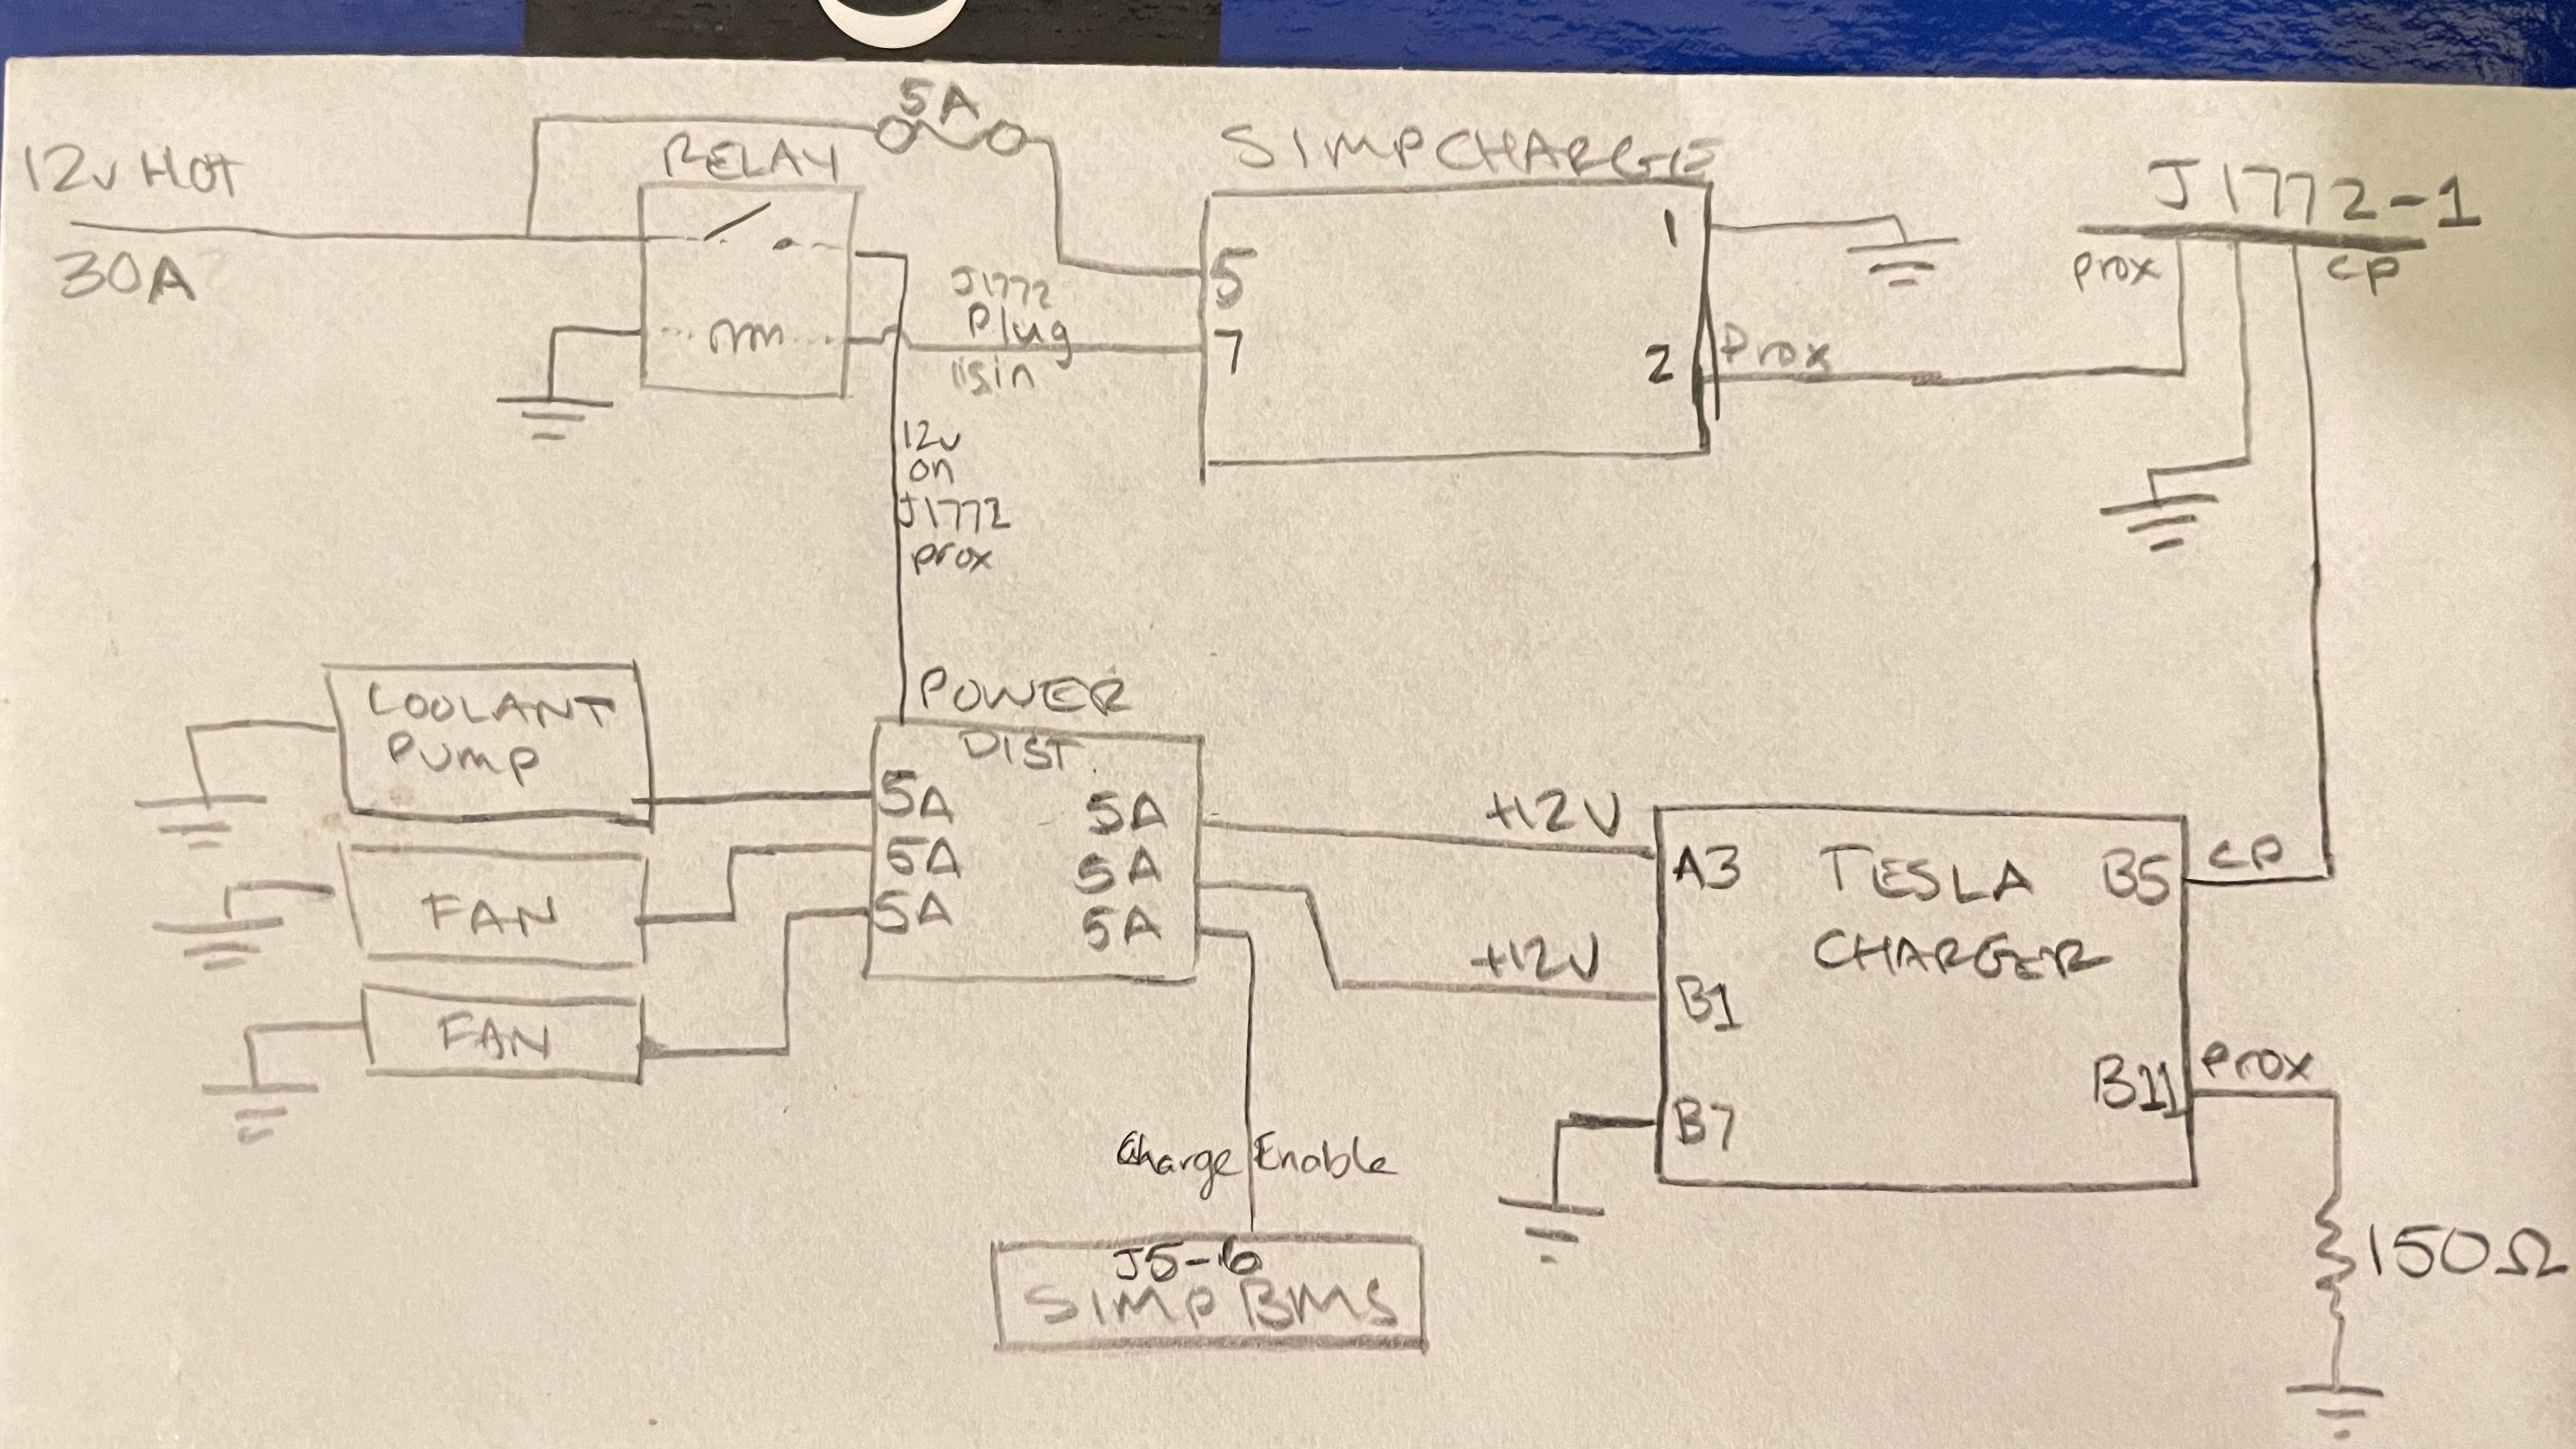 5A
12v HOT
30A
RELAY
SIMPCHARGE
J1772-1
5
7
1
2
Prox
prox
CP
J1772
Plug
is in
12v
on
J1772
prox
COOLANT
PUMP
FAN
FAN
POWER
DIST.
5A
5A
5A
5A
5A
5A
+12V
+12V
A3
B1
B7
TESLA
CHARGER
B5
B11
CP
Prox
150Ω
Charge Enable
J5-6
SIMP BMS